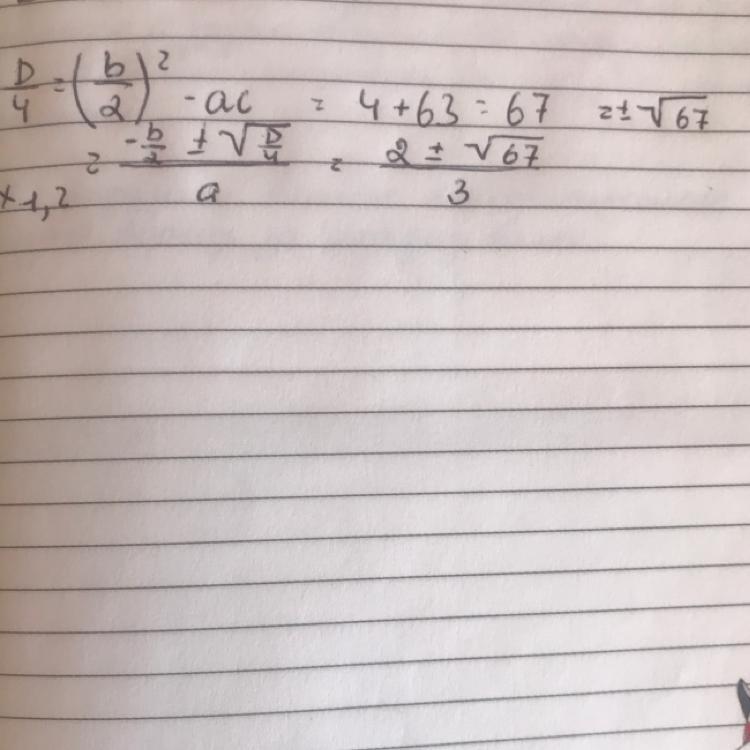 D/4 = (b/2)² - ac = 4 + 63 = 67 = ± √67
x 1,2 = (-b/2 ± √(D/4))/a = (2 ± √67)/3